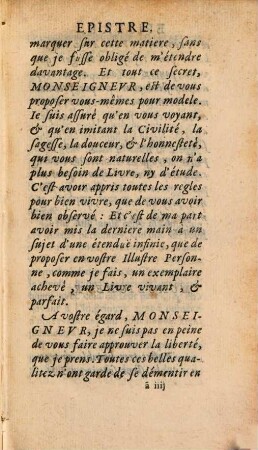 EPISTRE.
marquer sur cette matiere, sans
que je fusse obligé de m'étendre
davantage. Et tout ce secret,
MONSEIGNEVR, est de vous
proposer vous-mêmes pour modele.
Ie suis assuré qu'en vous voyant,
& qu'en imitant la Civilité, la
sagesse, la douceur, & l'honnesteté,
qui vous sont naturelles, on n'a
plus besoin de Livre, ny d'étude.
C'est avoir appris toutes les regles
pour bien vivre, que de vous avoir
bien observé : Et c'est de ma part
avoir mis la derniere main à un
sujet d'une étenduë infinie, que de
proposer en vostre Illustre Person-
ne, comme je fais, un exemplaire
achevé, un Livre vivant, &
parfait.
A vostre égard, MONSEI-
GNEVR, je ne suis pas en peine
de vous faire approuver la liberté,
que je prens. Toutes ces belles qua-
litez n'ont garde de se démentir en
ã iij